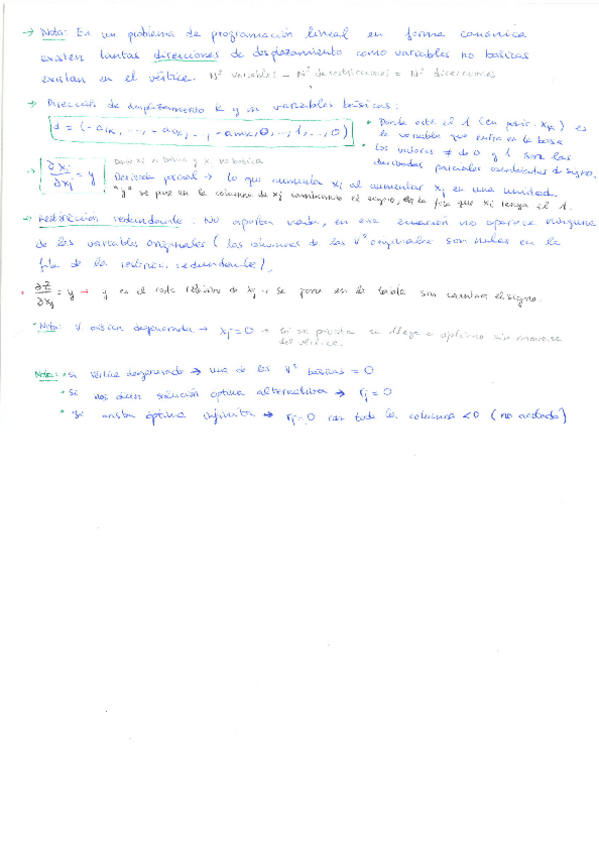 → Nota: En un problema de programación lineal en forma canónica
existen tantas direcciones de desplazamiento como variables no básicas
existan en el vértice. Nº variables - Nº de restricciones = Nº direcciones
→ Dirección de desplazamiento K y m variables básicas:
d = (-a₁ₖ, ..., -a₂ₖ, ..., -amₖ, 0, ..., 1, ..., 0)
• Donde está el 1 (en posic. Xₖ) es
la variable que entra en la base
• Los valores ≠ de 0 y 1 son las
derivadas parciales cambiadas de signo.
→ ∂xi/∂xj = y
Donde xi es básica y xj no básica
Derivada parcial → lo que aumenta xi al aumentar xj en una unidad.
"y" se pone en la columna de xj cambiando el signo, en la fila que xi tenga el 1.
→ Restricción redundante: No aporta nada, en esa ecuación no aparece ninguna
de las variables originales (las columnas de las Vª originales son nulas en la
fila de la restricc. redundante).
• ∂Z/∂xj = y → y es el coste relativo de xj → se pone en la tabla sin cambiar el signo.
*Nota: V. básica degenerada → xj = 0 → si se pivota se llega a óptimo sin moverse
del vértice.
Nota: • si vértice degenerado → una de las Vª básicas = 0
• Si nos dicen solución óptima alternativa → rj = 0
• Si óptima infinita → rj = 0 con toda la columna < 0 (no acotado)